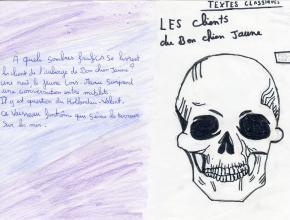 À quels sombres trafics se livrent
les clients de l'auberge du Bon chien Jaune ?
une nuit le jeune Louis-Marie surprend
une conversation entre matelots
Il y est question du Hollandais-Volant.
ce Vaisseau fantôme qui sème la terreur
sur les mers.
TEXTES CLASSIQUES
LES Clients
du Bon chien Jaune